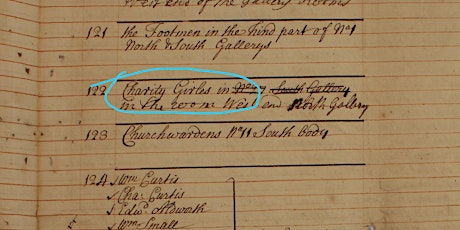 West end of the Gallery
121 the Footmen in the hind part of No 1
North & South Gallerys
122 Charity Girles in South Gallery
in the room West end North Gallery
123 Churchwardens No 11 South body
124 Wm Curtis
Cha: Curtis
Edwd. Aldworth
Wm Small